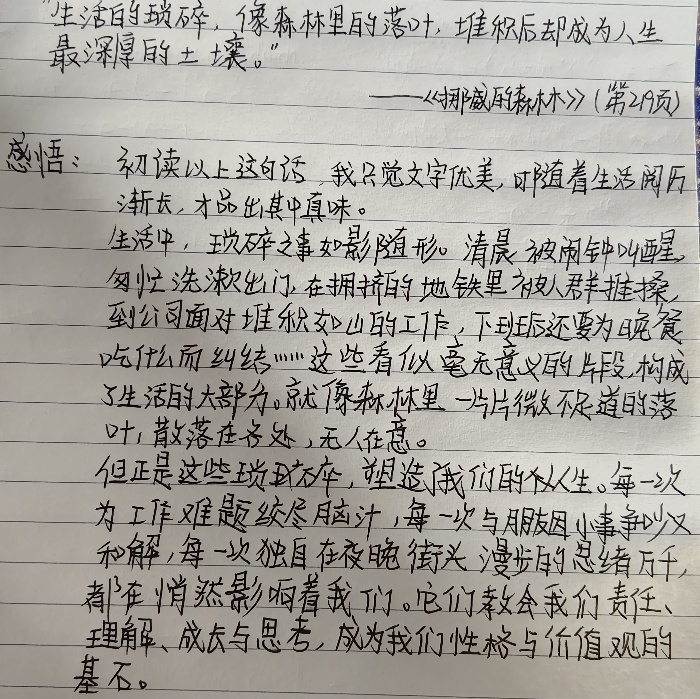 "生活的琐碎，像森林里的落叶，堆积后却成为人生
最深厚的土壤。"
——《挪威的森林》（第219页）
感悟： 初读以上这句话，我只觉文字优美，可随着生活阅历
渐长，才品出其中真味。
生活中，琐碎之事如影随形。清晨被闹钟叫醒，
匆忙洗漱出门，在拥挤的地铁里被人群推搡，
到公司面对堆积如山的工作，下班后还要为晚餐
吃什么而纠结……这些看似毫无意义的片段，构成
了生活的大部分。就像森林里一片片微不足道的落
叶，散落在各处，无人在意。
但正是这些琐碎，塑造了我们的人生。每一次
为工作难题绞尽脑汁，每一次与朋友因小事争吵又
和解，每一次独自在夜晚街头漫步的思绪万千，
都在悄然影响着我们。它们教会我们责任、
理解、成长与思考，成为我们性格与价值观的
基石。